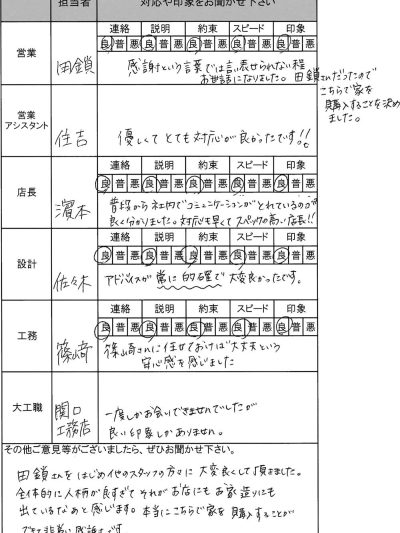 担当者
対応や印象をお聞かせ下さい
連絡 説明 約束 スピード 印象
良 普 悪 良 普 悪 良 普 悪 良 普 悪 良 普 悪
営業
田鎖
感謝という言葉では言い表せられない程
お世話になりました。田鎖さんだったので
こちらで家を
購入することを決め
ました。
営業
アシスタント
住吉
優しくてとても対応が良かったです!!
連絡 説明 約束 スピード 印象
良 普 悪 良 普 悪 良 普 悪 良 普 悪 良 普 悪
店長
濱本
普段から社内でコミュニケーションがとれているのが
良く分かりました。対応も早くてスペックの高い店長!!
連絡 説明 約束 スピード 印象
良 普 悪 良 普 悪 良 普 悪 良 普 悪 良 普 悪
設計
佐々木
アドバイスが常に的確で大変良かったです。
連絡 説明 約束 スピード 印象
良 普 悪 良 普 悪 良 普 悪 良 普 悪 良 普 悪
工務
篠崎
篠崎さんに任せておけば大丈夫という
安心感を感じました
大工職
関口
工務店
一度しかお会いできませんでしたが
良い印象しかありません。
その他ご意見等がございましたら、ぜひお聞かせ下さい。
田鎖さんをはじめ他のスタッフの方々に大変良くして頂きました。
全体的に人柄が良すぎてそれがお店にもお家造りにも
出ているなぁと感じます。本当にこちらで家を購入することが